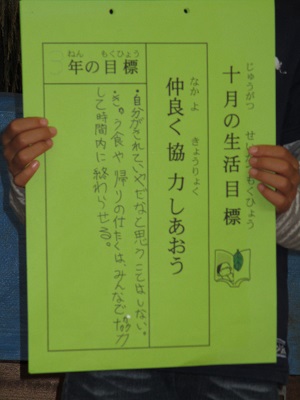 じゅうがつ せいかつ もくひょう
十月の生活目標
なか よ きょうりょく
仲良く協力しあおう
ねん もくひょう
年の目標
・自分がされていやだなと思うことはしない。
・きゅう食や帰りの仕たくは、みんなで協力
して時間内に終わらせる。